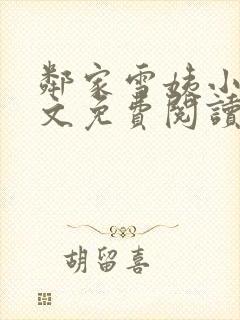 鄰家雪姨小
文免費閱讀
胡留喜